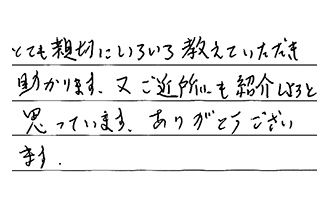 とても親切にいろいろ教えていただき
助かります、又ご近所にも紹介しようと
思っています、ありがとうござい
ます.